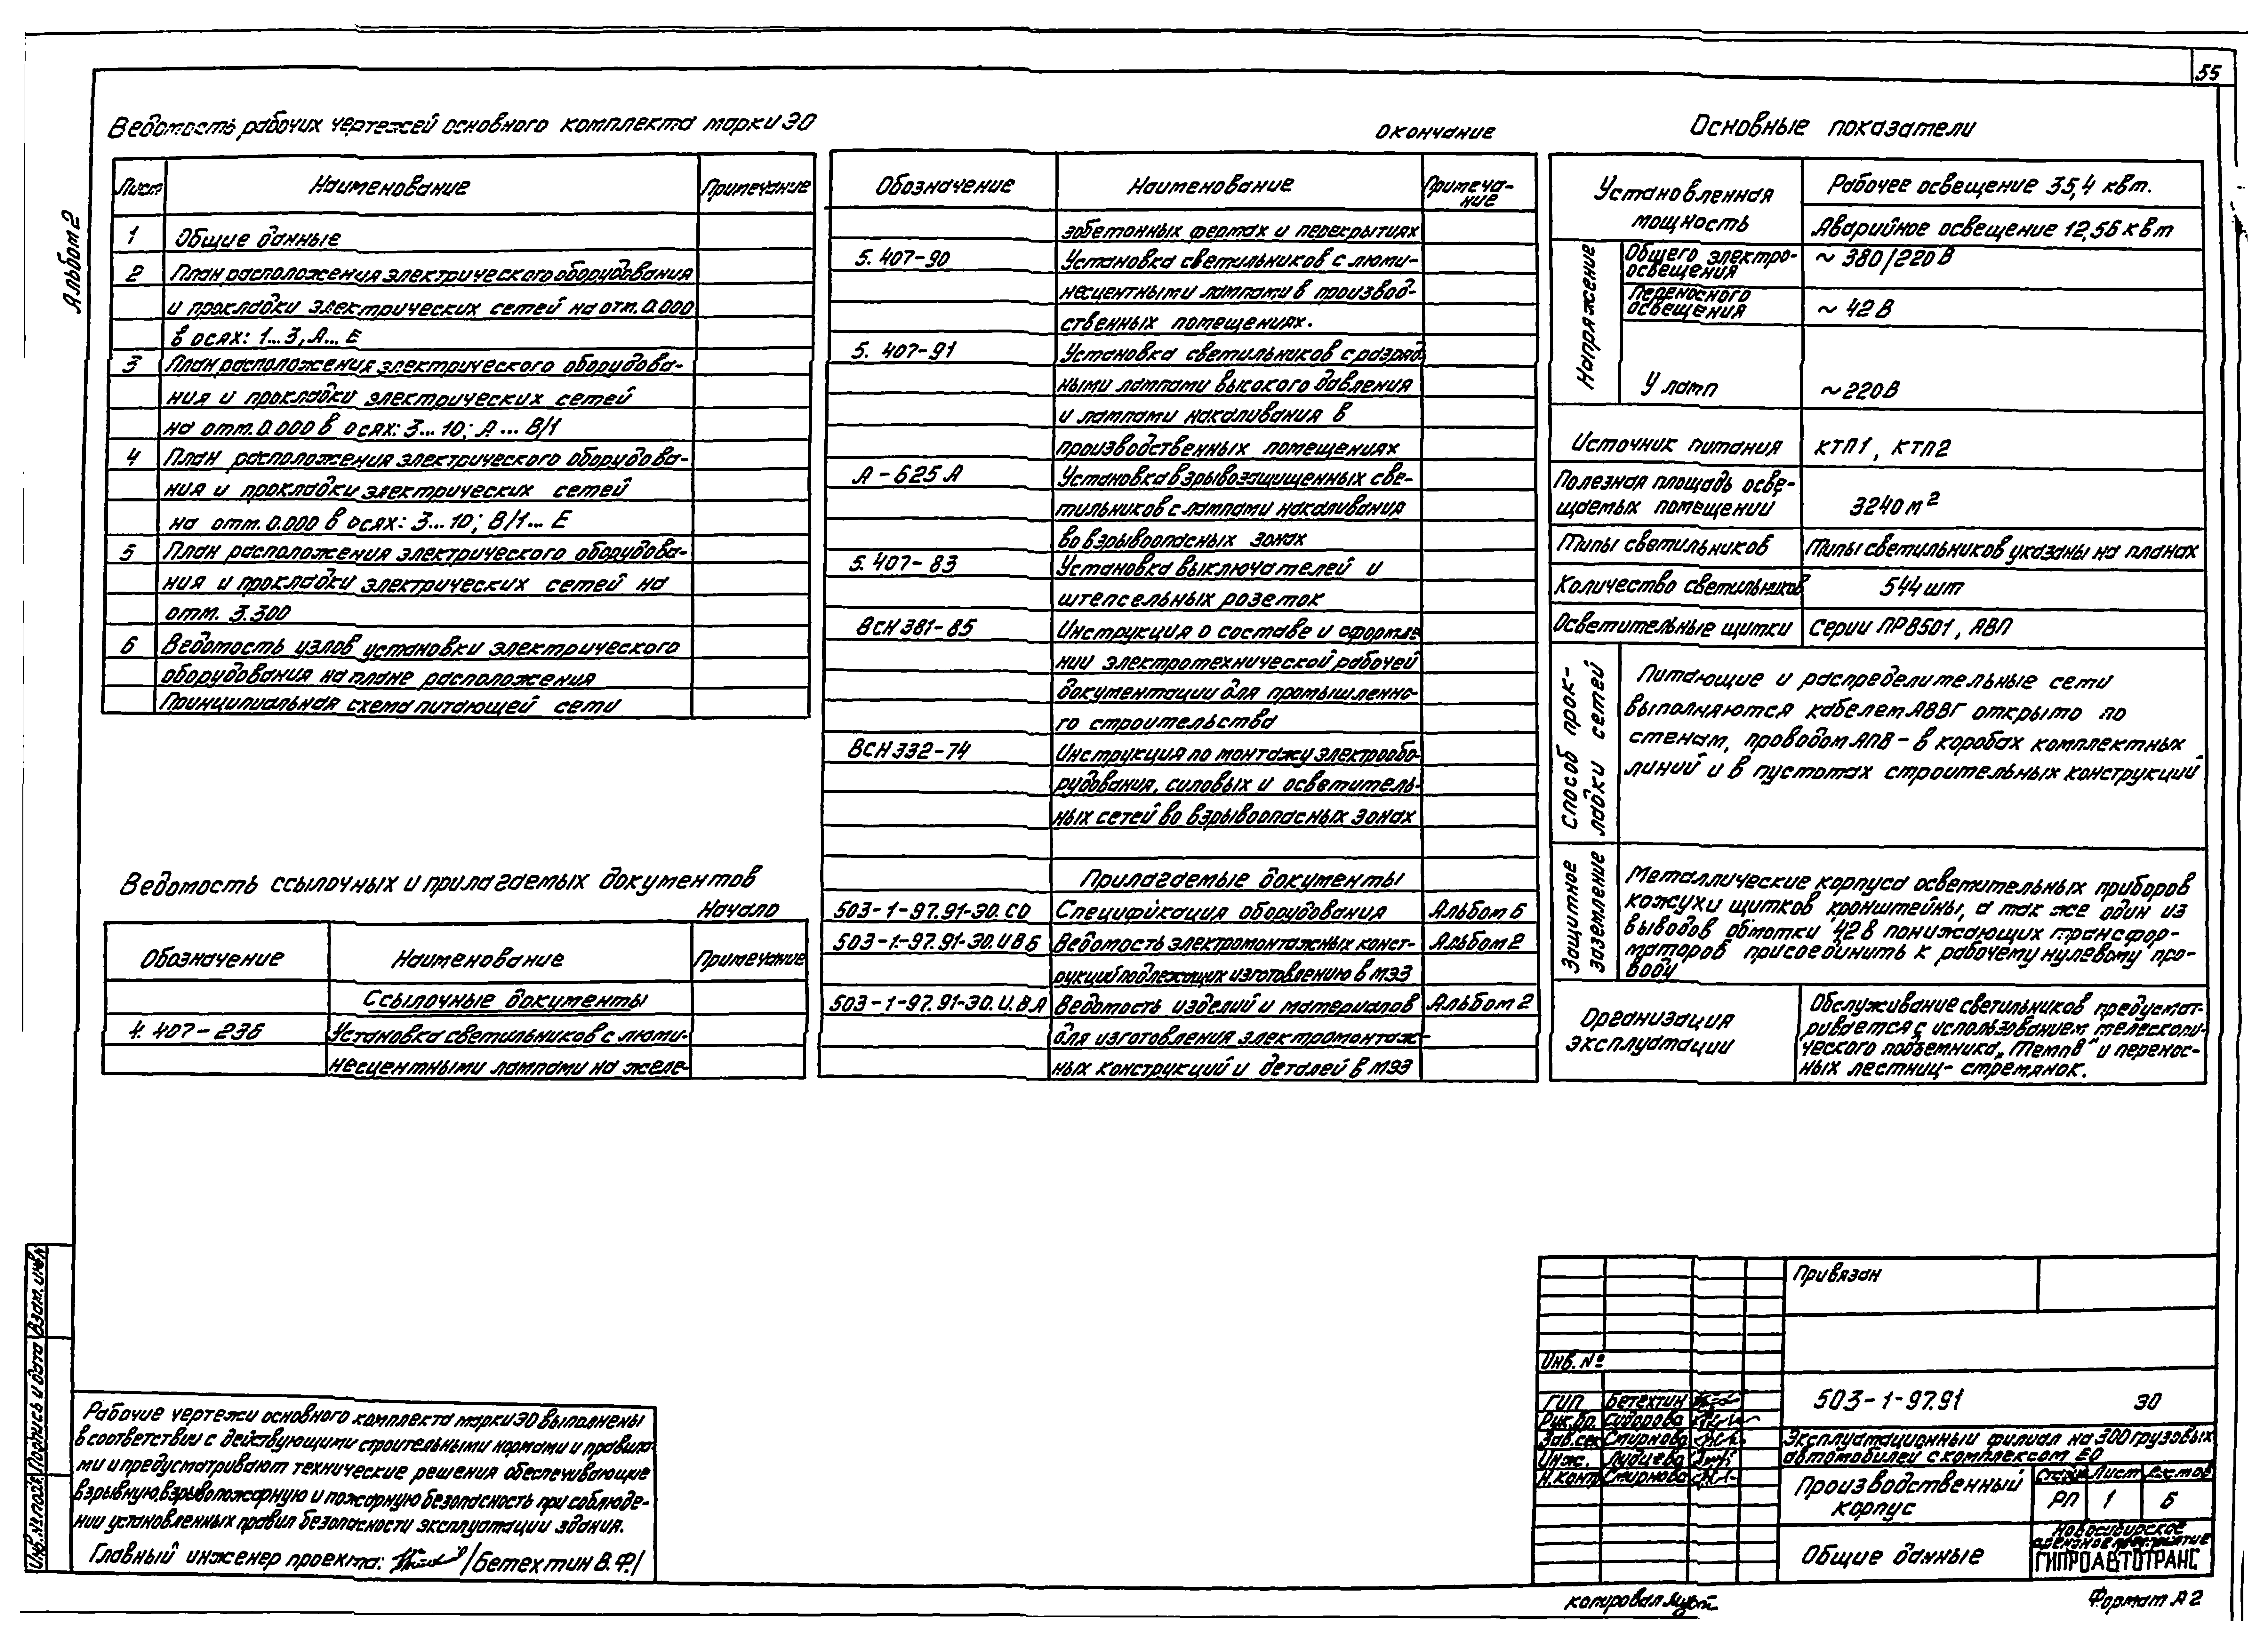 55
Альбом 2
Ведомость рабочих чертежей основного комплекта марки ЭО
Лист Наименование Примечание
1 Общие данные
2 План расположения электрического оборудования
и прокладки электрических сетей на отм. 0.000
в осях: 1...3, А... Е
3 План расположения электрического оборудова-
ния и прокладки электрических сетей
на отм. 0.000 в осях: 3... 10; А ... В/1
4 План расположения электрического оборудова-
ния и прокладки электрических сетей
на отм. 0.000 в осях: 3...10; В/1... Е
5 План расположения электрического оборудова-
ния и прокладки электрических сетей на
отм. 3.300
6 Ведомость узлов установки электрического
оборудования на плане расположения
Принципиальная схема питающей сети
Ведомость ссылочных и прилагаемых документов
Начало
Обозначение Наименование Примечание
Ссылочные документы
4. 407-236 Установка светильников с люми-
несцентными лампами на желе-
Окончание
Обозначение Наименование Примеча-
ние
зобетонных фермах и перекрытиях
5. 407-90 Установка светильников с люми-
несцентными лампами в производ-
ственных помещениях.
5. 407-91 Установка светильников с разряд
ными лампами высокого давления
и лампами накаливания в
производственных помещениях
А-625 А Установка взрывозащищенных све-
тильников с лампами накаливания
во взрывоопасных зонах
5. 407-83 Установка выключателей и
штепсельных розеток
ВСН 381-85 Инструкция о составе и оформле
нии электротехнической рабочей
документации для промышленно-
го строительства
ВСН 332-74 Инструкция по монтажу электрообо-
рудования, силовых и осветитель-
ных сетей во взрывоопасных зонах
Прилагаемые документы
503-1-97.91-ЭО.СО Спецификация оборудования Альбом 6
503-1-97.91-ЭО.И ВБ Ведомость электромонтажных конст- Альбом 2
рукций подлежащих изготовлению в МЭЗ
503-1-97.91-ЭО.И.ВА Ведомость изделий и материалов Альбом 2
для изготовления электромонтаж-
ных конструкций и деталей в МЭЗ
Основные показатели
Установленная
мощность
Рабочее освещение 35,4 квт.
Аварийное освещение 12,56 квт
Напряжение
Общего электро-
освещения
~ 380/220 В
Переносного
освещения
~ 42 В
У ламп ~220 В
Источник питания КТП1, КТП2
Полезная площадь осве-
щаемых помещений
3240 м²
Типы светильников Типы светильников указаны на планах
Количество светильников 544 шт
Осветительные щитки Серии ПР8501, ЯВП
Способ прок-
ладки сетей
Питающие и распределительные сети
выполняются кабелем АВВГ открыто по
стенам, проводом АПВ - в коробах комплектных
линий и в пустотах строительных конструкций
Защитное
заземление
Металлические корпуса осветительных приборов
кожухи щитков, кронштейны, а так же один из
выводов обмотки 42 В понижающих трансфор-
маторов присоединить к рабочему нулевому про-
воду
Организация
эксплуатации
Обслуживание светильников предусмат-
ривается с использованием телескопи-
ческого подъемника „Темп В" и перенос-
ных лестниц- стремянок.
Рабочие чертежи основного комплекта марки ЭО выполнены
в соответствии с действующими строительными нормами и правила-
ми и предусматривают технические решения обеспечивающие
взрывную, взрывопожарную и пожарную безопасность при соблюде-
нии установленных правил безопасности эксплуатации здания.
Главный инженер проекта: /Бетехтин В.Ф./
Инв.№ подл. Подпись и дата Взам. инв.№
Привязан
Инв. №
ГИП Бетехтин
Рук.бр. Сидорова
Зав.сек Смирнова
Инж.
Н.конт Смирнова
503-1-97.91 ЭО
Эксплуатационный филиал на 300 грузовых
автомобилей с комплексом ЕО
Производственный
корпус
Стадия Лист Листов
РП 1 6
Общие данные
Новосибирское
арендное предприятие
ГИПРОАВТОТРАНС
копировал
Формат А2